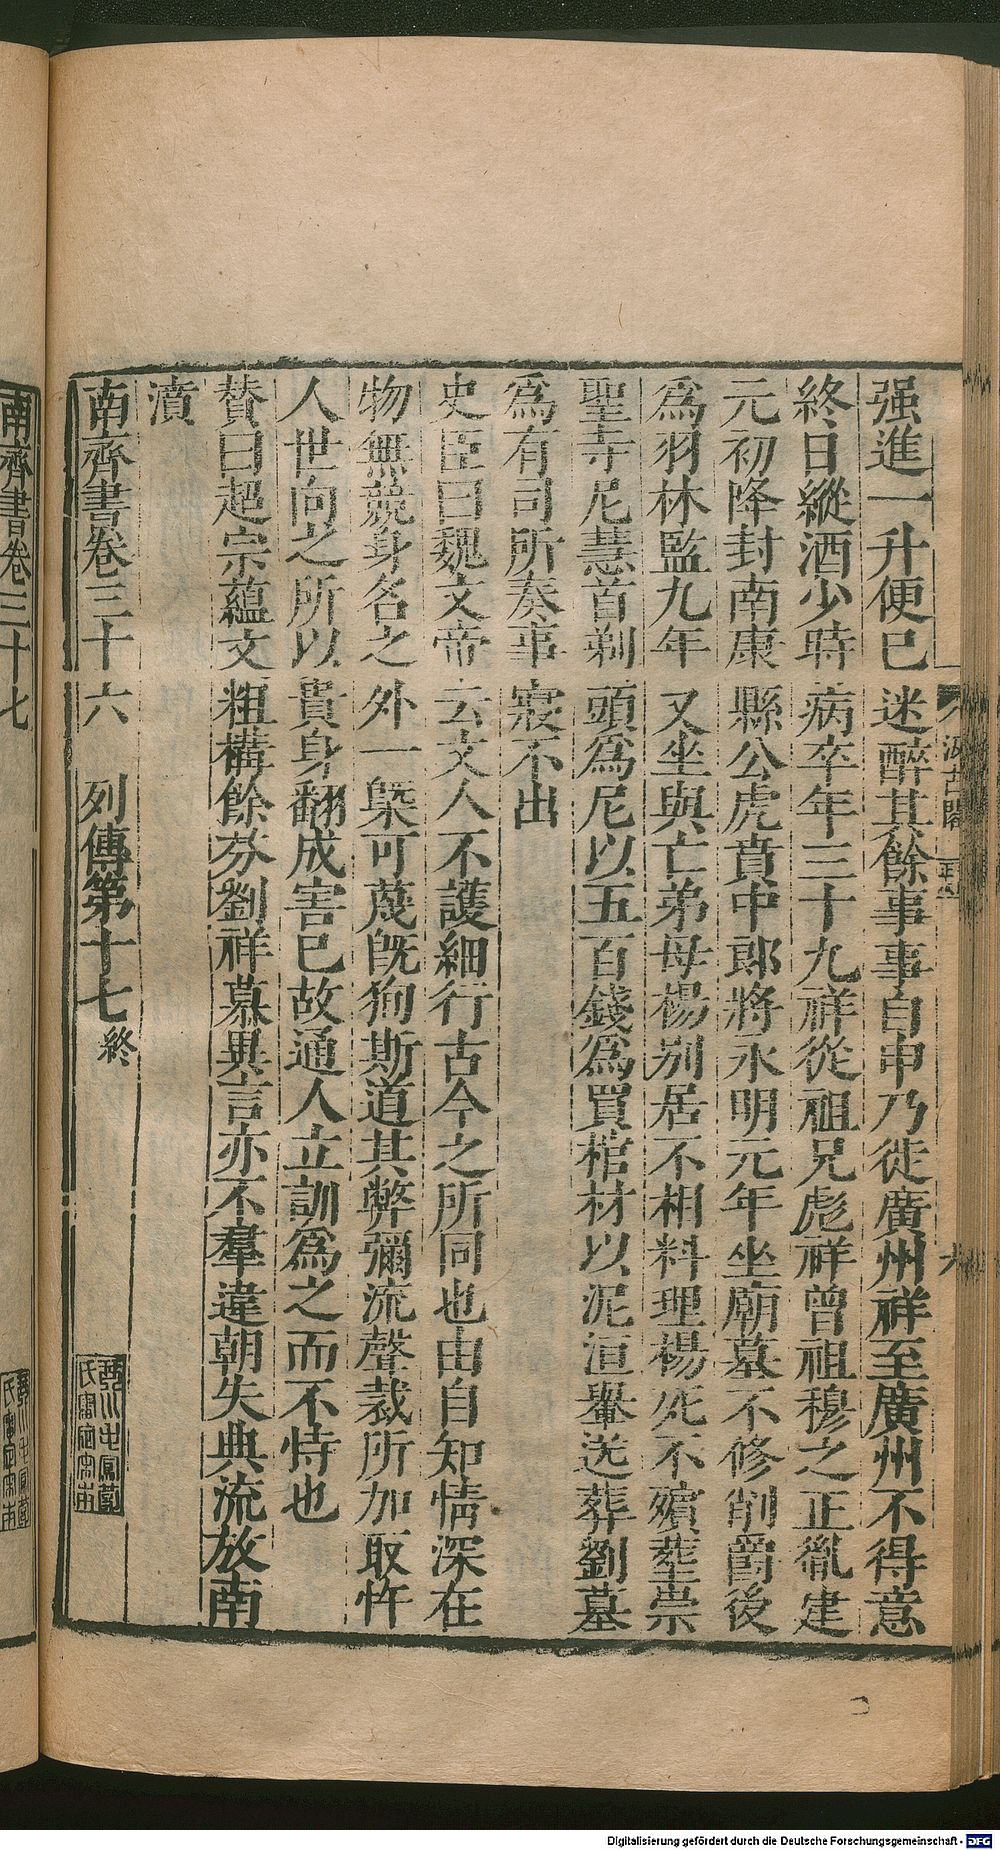 强進一升便已迷醉其餘事事自申乃徙廣州祥至廣州不得意
終日縱酒少時病卒年三十九祥從祖兄彪祥曾祖穆之正胤建
元初降封南康縣公虎賁中郎將永明元年坐廟墓不修削爵後
爲羽林監九年又坐與亡弟母楊别居不相料理楊死不殯葬崇
聖寺尼慧首剃頭爲尼以五百錢爲買棺材以泥洹轝送葬劉墓
爲有司所奏事寢不出
史臣曰魏文帝云文人不護細行古今之所同也由自知情深在
物無競身名之外一槩可蔑旣徇斯道其弊彌流聲裁所加取忤
人世向之所以貴身翻成害已故通人立訓爲之而不恃也
賛曰超宗蘊文粗構餘芬劉祥慕異言亦不羣違朝失典流放南
濆
南齊書卷三十六 列傳第十七 終
汲古閣
六
南齊書卷三十七
Digitalisierung gefördert durch die Deutsche Forschungsgemeinschaft - DFG